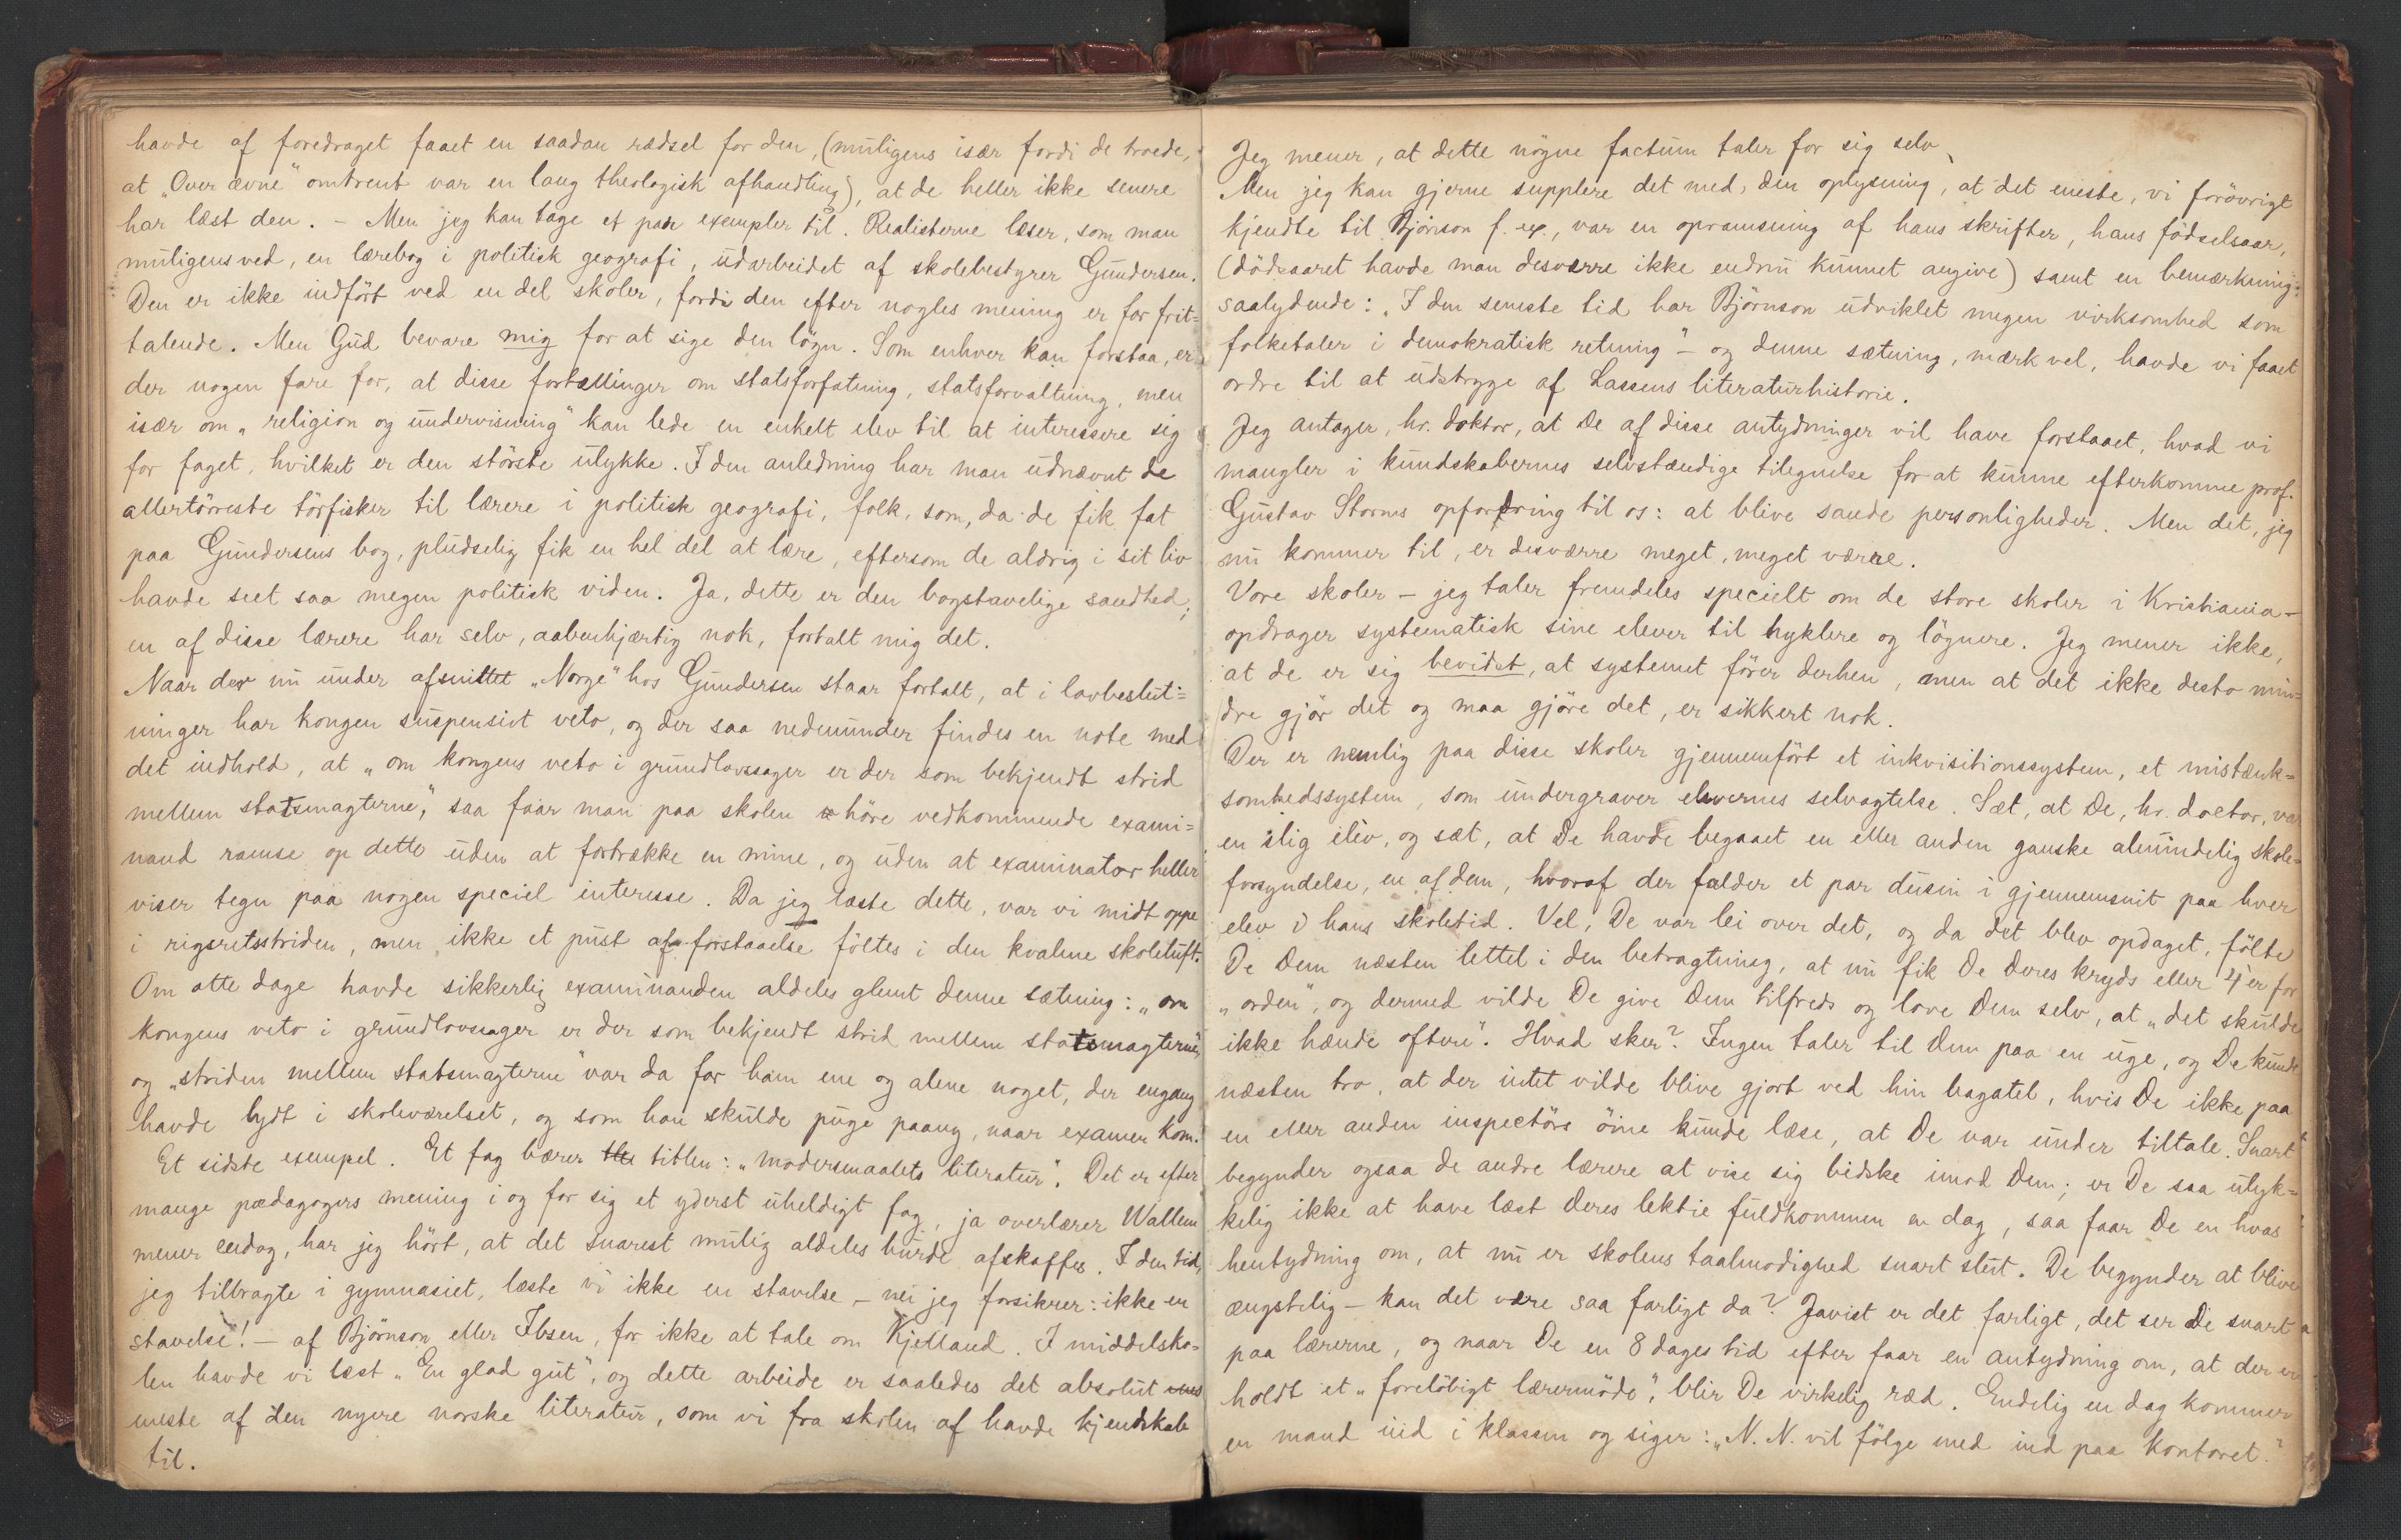 havde af foredraget faaet en saadan rædsel for den, (muligens især fordi de troede,
at „Over ævne" omtrent var en lang theologisk afhandling), at de heller ikke senere
har læst den. – Men jeg kan tage et par exempler til. Realisterne læser, som man
muligens ved, en lærebog i politisk geografi, udarbeidet af skolebestyrer Gundersen.
Den er ikke indført ved en del skoler, fordi den efter nogles mening er for frit=
talende. Men Gud bevare mig for at sige den løgn. Som enhver kan forstaa, er
der nogen fare for, at disse fortællinger om statsforfatning, statsforvaltning, men
især om „religion og undervisning" kan lede en enkelt elev til at interessere sig
for faget, hvilket er den største ulykke. I den anledning har man udnævnt de
allertørreste tørfisker til lærere i politisk geografi, folk, som, da de fik fat
paa Gundersens bog, pludselig fik en hel del at lære, eftersom de aldrig i sit liv
havde seet saa megen politisk viden. Ja, dette er den bogstavelige sandhed;
en af disse lærere har selv, aabenhjærtig nok, fortalt mig det.
Naar der nu under afsnittet „Norge" hos Gundersen staar fortalt, at i lovbeslut=
ninger har kongen suspensivt veto, og der saa nedenunder findes en note med
det indhold, at „om kongens veto i grundlovssager er der som bekjendt strid
mellem statsmagterne", saa faar man paa skolen høre vedkommende exami=
nand ramse op dette uden at fortrække en mine, og uden at examinator heller
viser tegn paa nogen speciel interesse. Da jeg læste dette, var vi midt oppe
i rigsretsstriden, men ikke et pust af forstaaelse føltes i den kvalme skoleluft.
Om otte dage havde sikkerlig examinanden aldeles glemt denne sætning: „om
kongens veto i grundlovssager er der som bekjendt strid mellem statsmagterne",
og „striden mellem statsmagterne" var da for ham ene og alene noget, der engang
havde lydt i skoleværelset, og som han skulde puge paany, naar examen kom.
Et sidste exempel. Et fag bærer titlen: „modersmaalets literatur". Det er efter
mange pædagogers mening i og for sig et yderst uheldigt fag, ja overlærer Wallem
mener endog, har jeg hørt, at det snarest mulig aldeles burde afskaffes. I den tid,
jeg tilbragte i gymnasiet, læste vi ikke en stavelse – nei jeg forsikrer: ikke en
stavelse! – af Bjørnson eller Ibsen, for ikke at tale om Kjelland. I middelsko=
len havde vi læst „En glad gut", og dette arbeide er saaledes det absolut
eneste af den nyere norske literatur, som vi fra skolen af havde kjendskab
til.
Jeg mener, at dette nøgne factum taler for sig selv.
Men jeg kan gjerne supplere det med, den oplysning, at det eneste, vi forøvrigt
kjendte til Bjørnson f. ex., var en opramsning af hans skrifter, hans fødselsaar,
(dødsaaret havde man desværre ikke endnu kunnet angive) samt en bemærkning:
saalydende: „I den seneste tid har Bjørnson udviklet megen virksomhed som
folketaler i demokratisk retning" – og denne sætning, mærk vel, havde vi faaet
ordre til at udstryge af Lassens literaturhistorie.
Jeg antager, hr. doktor, at De af disse antydninger vil have forstaaet, hvad vi
mangler i kundskabernes selvstændige tilegnelse for at kunne efterkomme prof.
Gustav Storms opfordring til os: at blive sande personligheder. Men det, jeg
nu kommer til, er desværre meget, meget værre.
Vore skoler – jeg taler fremdeles specielt om de store skoler i Kristiania –
opdrager systematisk sine elever til hyklere og løgnere. Jeg mener ikke,
at de er sig bevidst, at systemet fører derhen, men at det ikke desto min=
dre gjør det og maa gjøre det, er sikkert nok.
Der er nemlig paa disse skoler gjennemført et inkvisitionssystem, et mistænk=
somhedssystem, som undergraver elevernes selvagtelse. Sæt, at De, hr. doctor, var
en slig elev, og sæt, at De havde begaaet en eller anden ganske almindelig skole=
forsyndelse, en af dem, hvoraf der falder et par dusin i gjennemsnit paa hver
elev i hans skoletid. Vel, De var lei over det, og da det blev opdaget, følte
De Dem næsten lettet i den betragtning, at nu fik De Deres kryds eller 4'er for
„orden", og dermed vilde De give Dem tilfreds og love Dem selv, at „det skulde
ikke hænde oftere". Hvad sker? Ingen taler til Dem paa en uge, og De kunde
næsten tro, at der intet vilde blive gjort ved hin bagatel, hvis De ikke paa
en eller anden inspectørs øine kunde læse, at De var under tiltale. Snart
begynder ogsaa de andre lærere at vise sig bidske imod Dem; er De saa ulyk=
kelig ikke at have læst Deres lektie fuldkommen en dag, saa faar De en hvas
hentydning om, at nu er skolens taalmodighed snart slut. De begynder at blive
ængstelig – kan det være saa farligt da? Javist er det farligt, det ser De snart
paa lærerne, og naar De en 8 dages tid efter faar en antydning om, at der er
holdt et „foreløbigt lærermøde", blir De virkelig ræd. Endelig en dag kommer
en mand ind i klassen og siger: „N. N. vil følge med ind paa kontoret."